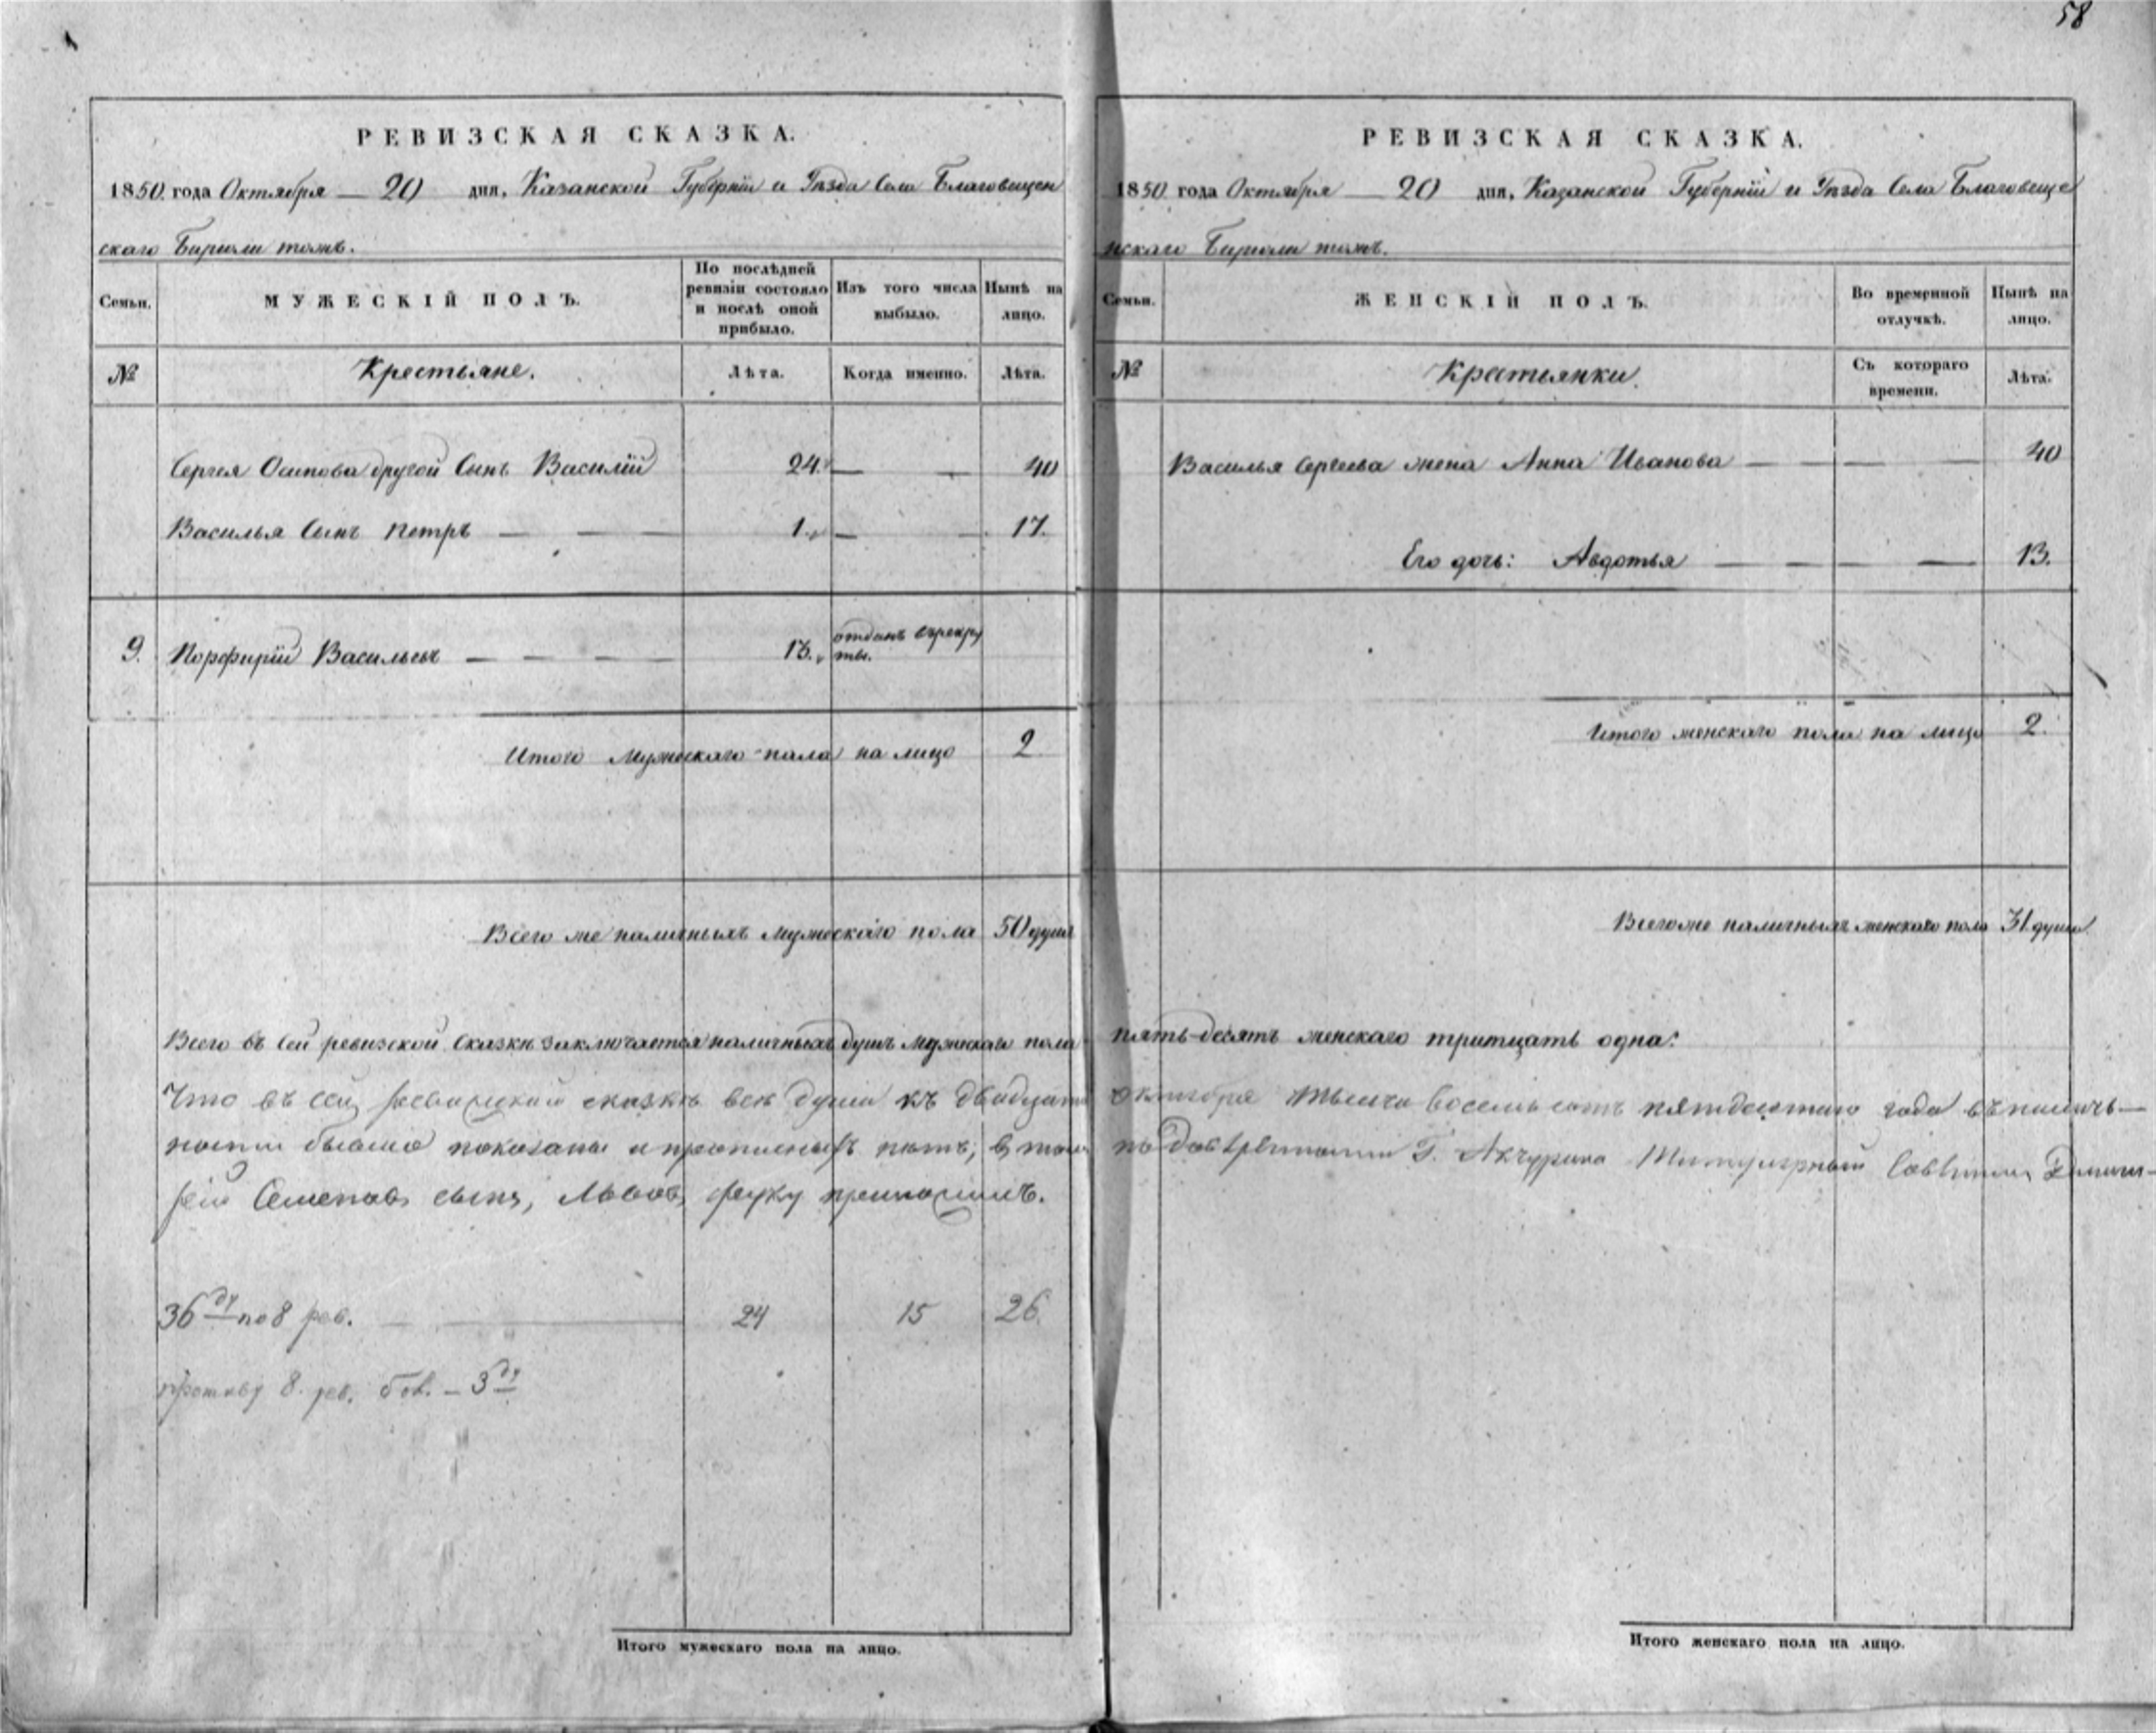 58
РЕВИЗСКАЯ СКАЗКА.
1850 года Октября — 20 дня, Казанской Губерніи и Уѣзда Села Благовещен
скаго Бирюли тожъ.
Семьи.
МУЖЕСКІЙ ПОЛЪ.
По послѣдней ревизіи состояло и послѣ оной прибыло.
Изъ того числа выбыло.
Нынѣ на лицо.
№
Крестьяне.
Лѣта.
Когда именно.
Лѣта.
Сергея Осипова другой Сынъ Василій 24. — — 40
Василья Сынъ Петръ — — 1. — — 17.
9. Порфирій Васильевъ — — — 13. отданъ врекру
ты.
Итого Мужескаго пола на лицо 2
Всего же наличныхъ Мужескаго пола 50 душъ
Всего въ сей ревизской Сказкѣ заключается наличныхъ душъ Мужескаго пола
Что въ сей ревизской сказкѣ все души къ двадцатому
ности бывшие показаны и прописныхъ нѣтъ; в томъ
рей Семеновъ сынъ, Львовъ руку приложилъ.
36 ду по 8 рев. — 24 15 26
противу 8. рев. — 3 ду
Итого мужескаго пола на лицо.
РЕВИЗСКАЯ СКАЗКА.
1850 года Октября — 20 дня, Казанской Губерніи и Уѣзда Села Благовеще
нскаго Бирюли тожъ.
Семьи.
ЖЕНСКІЙ ПОЛЪ.
Во временной отлучкѣ.
Нынѣ на лицо.
№
Крестьянки.
Съ котораго времени.
Лѣта.
Василья Сергеева жена Анна Иванова — — — 40
Его дочь: Авдотья — — — — 13.
Итого женскаго пола на лицо 2.
Всего же наличныхъ женскаго пола 31 душа
пять-десятъ женскаго тритцать одна.
октября тысяча восемь сотъ пятидесятаго года въ налич—
по довѣренности Г. Акчурина Титулярный Совѣтникъ
Итого женскаго пола на лицо.